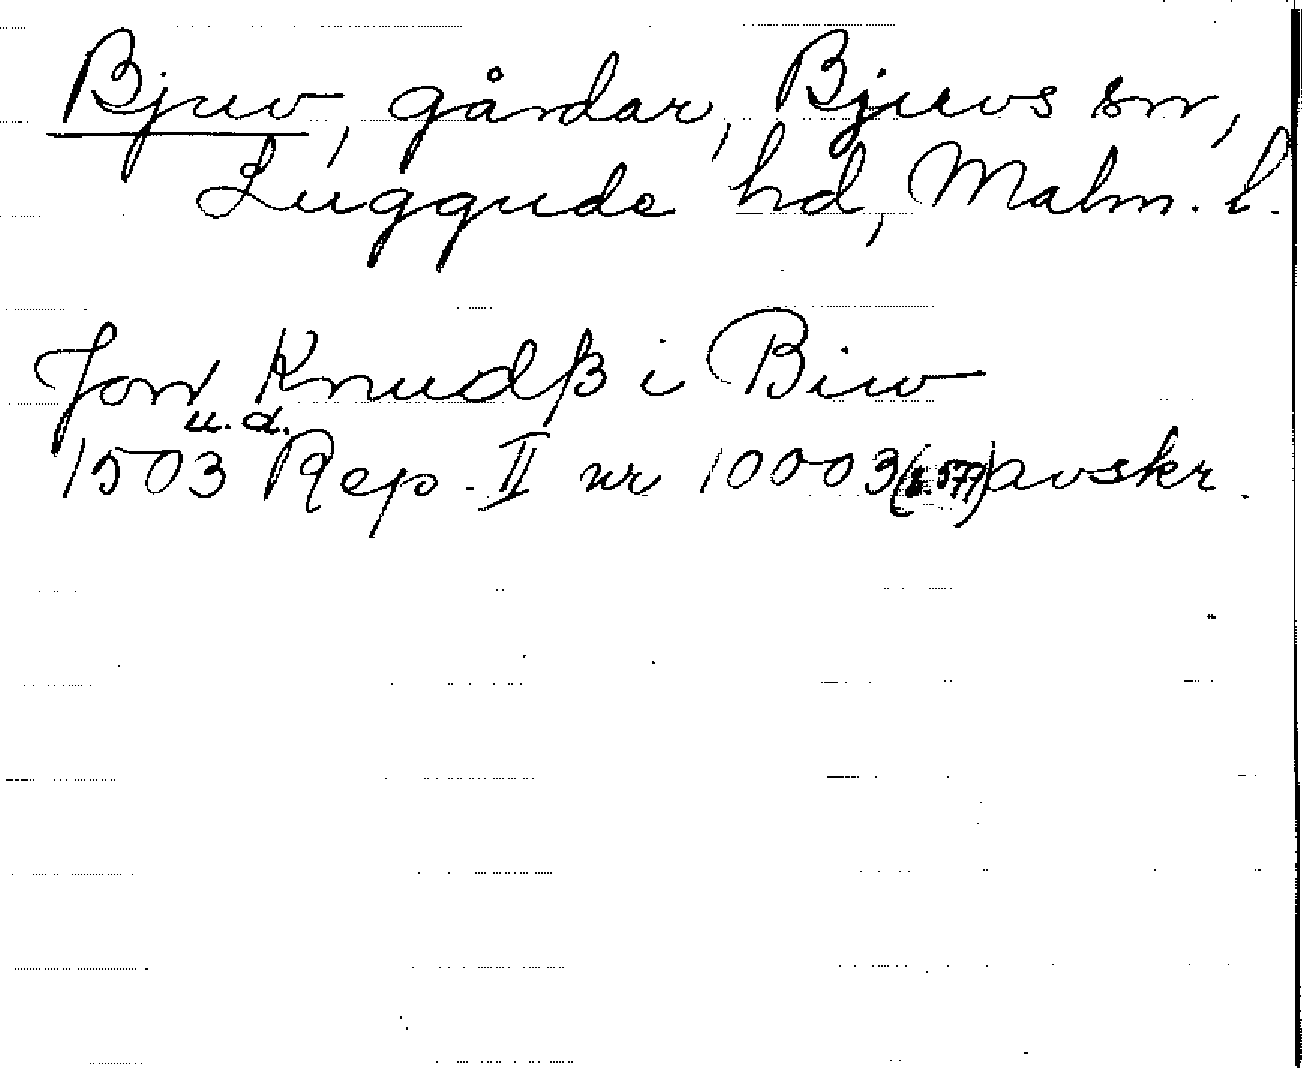 Bjuv, gårdar, Bjuvs sn,
Luggude hd, Malm. l.
Jon Knudß i Biw
u.d.
1503 Rep. II nr 10003 (s. 577) avskr.